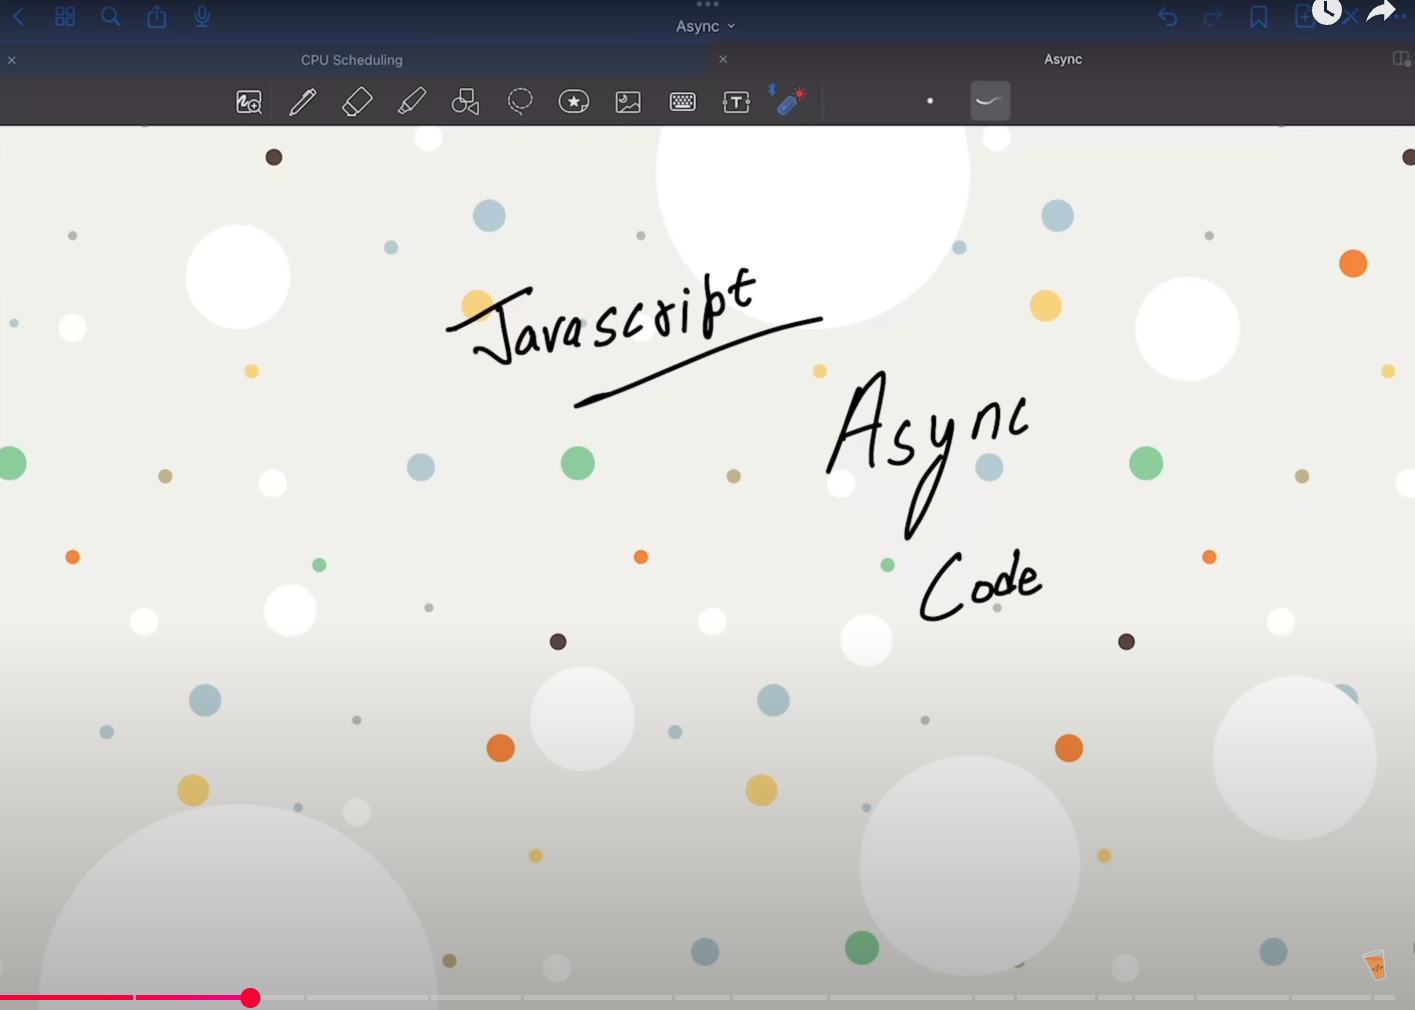 Async
CPU Scheduling
Async
T
Javascript
Async
Code
</>